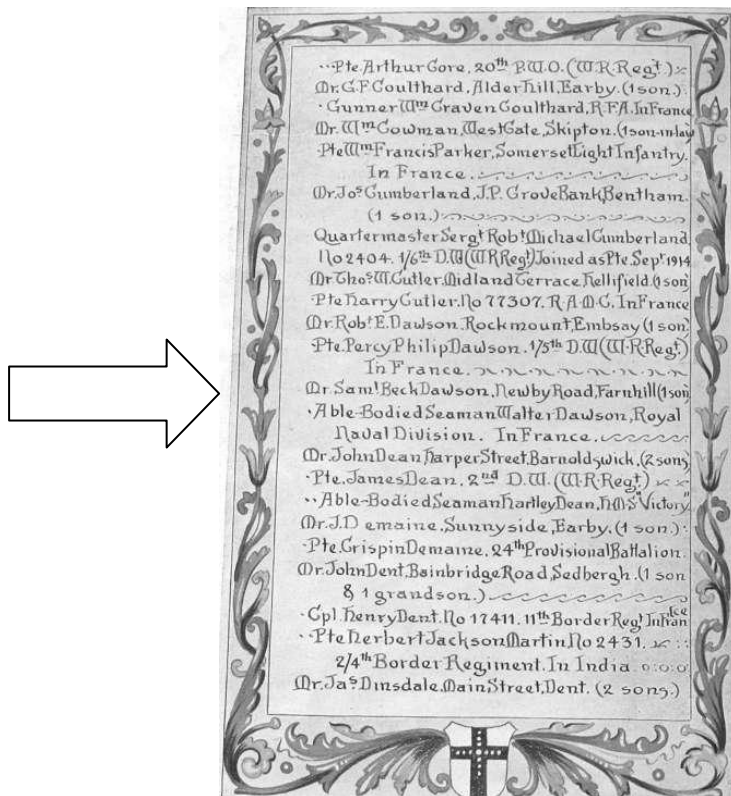 ··Pte. Arthur Gore, 20th P.W.O. (W.R. Regt.)
Mr. G.F. Coulthard, Alder Hill, Earby. (1 son.)
· Gunner Wm Craven Coulthard, R.F.A. In France
Mr. Wm Cowman, West Gate, Skipton. (1 son-in-law)
·Pte Wm Francis Parker, Somerset Light Infantry.
In France.
Mr. Jos. Cumberland, J.P. Grove Bank, Bentham.
(1 son.)
Quartermaster Sergt Robt Michael Cumberland,
No 2404. 1/6th D.W (W.R Regt) Joined as Pte. Sept 1914
Mr. Thos. W. Cutler, Midland Terrace, Hellifield. (1 son)
·Pte Harry Cutler. No 77307. R.A.M.C. In France
Mr. Robt E. Dawson, Rockmount, Embsay (1 son)
·Pte. Percy Philip Dawson. 1/5th D.W (W.R. Regt.)
In France.
Mr. Saml Beck Dawson, Newby Road, Farnhill (1 son)
·Able-Bodied Seaman Walter Dawson, Royal
Naval Division. In France.
Mr. John Dean, Harper Street, Barnoldswick. (2 sons)
·Pte. James Dean, 2nd D.W. (W.R. Regt.)
··Able-Bodied Seaman Hartley Dean, H.M.S "Victory"
Mr. J. D emaine, Sunnyside, Earby. (1 son.)
·Pte. Crispin Demaine. 24th Provisional Battalion.
Mr. John Dent, Bainbridge Road, Sedbergh. (1 son
& 1 grandson.)
·Cpl. Henry Dent. No 17411. 11th Border Regt In France
··Pte Herbert Jackson Martin, No 2431.
2/4th Border Regiment. In India
Mr. Jas. Dinsdale, Main Street, Dent. (2 sons.)